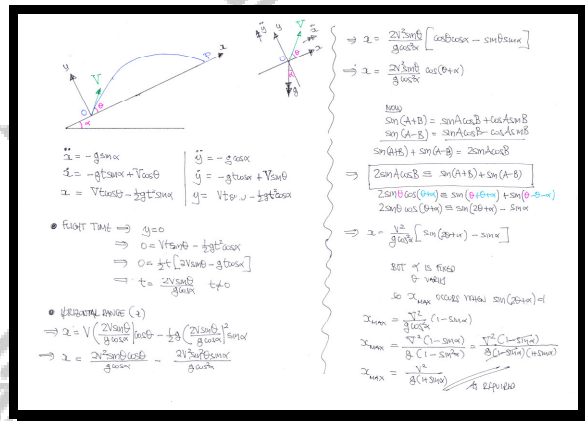 y
x
V
P
O
θ
α
ẍ = -g sinα
ẋ = -gt sinα + V cosθ
x = Vt cosθ - ½gt² sinα
ÿ = -g cosα
ẏ = -gt cosα + V sinθ
• FLIGHT TIME ⇒ y=0
⇒ 0 = Vt sinθ - ½gt² cosα
⇒ 0 = ½t [2V sinθ - gt cosα]
⇒ t = 2V sinθ / g cosα t≠0
⇒ x = V (2V sinθ / g cosα) cosθ - ½g (2V sinθ / g cosα)² sinα
⇒ x = 2V² sinθ cosθ / g cosα - 2V² sin²θ sinα / g cos²α
ÿ
y
V
ẍ
x
O
θ
α
g
⇒ x = 2V² sinθ / g cos²α [cosθ cosα - sinθ sinα]
⇒ x = 2V² sinθ / g cos²α cos(θ+α)
NOW
sin(A+B) = sinA cosB + cosA sinB
sin(A-B) = sinA cosB - cosA sinB
sin(A+B) + sin(A-B) = 2 sinA cosB
⇒ 2 sinA cosB ≡ sin(A+B) + sin(A-B)
2 sinθ cos(θ+α) ≡ sin(θ+θ+α) + sin(θ-θ-α)
2 sinθ cos(θ+α) ≡ sin(2θ+α) - sinα
⇒ x = V² / g cos²α [sin(2θ+α) - sinα]
BUT α IS FIXED
θ VARIES
SO x MAX OCCURS WHEN sin(2θ+α)=1
x MAX = V² / g cos²α (1 - sinα)
x MAX = V² (1 - sinα) / g (1 - sin²α) = V² (1 - sinα) / g (1 - sinα)(1 + sinα)
x MAX = V² / g(1 + sinα)
AS REQUIRED